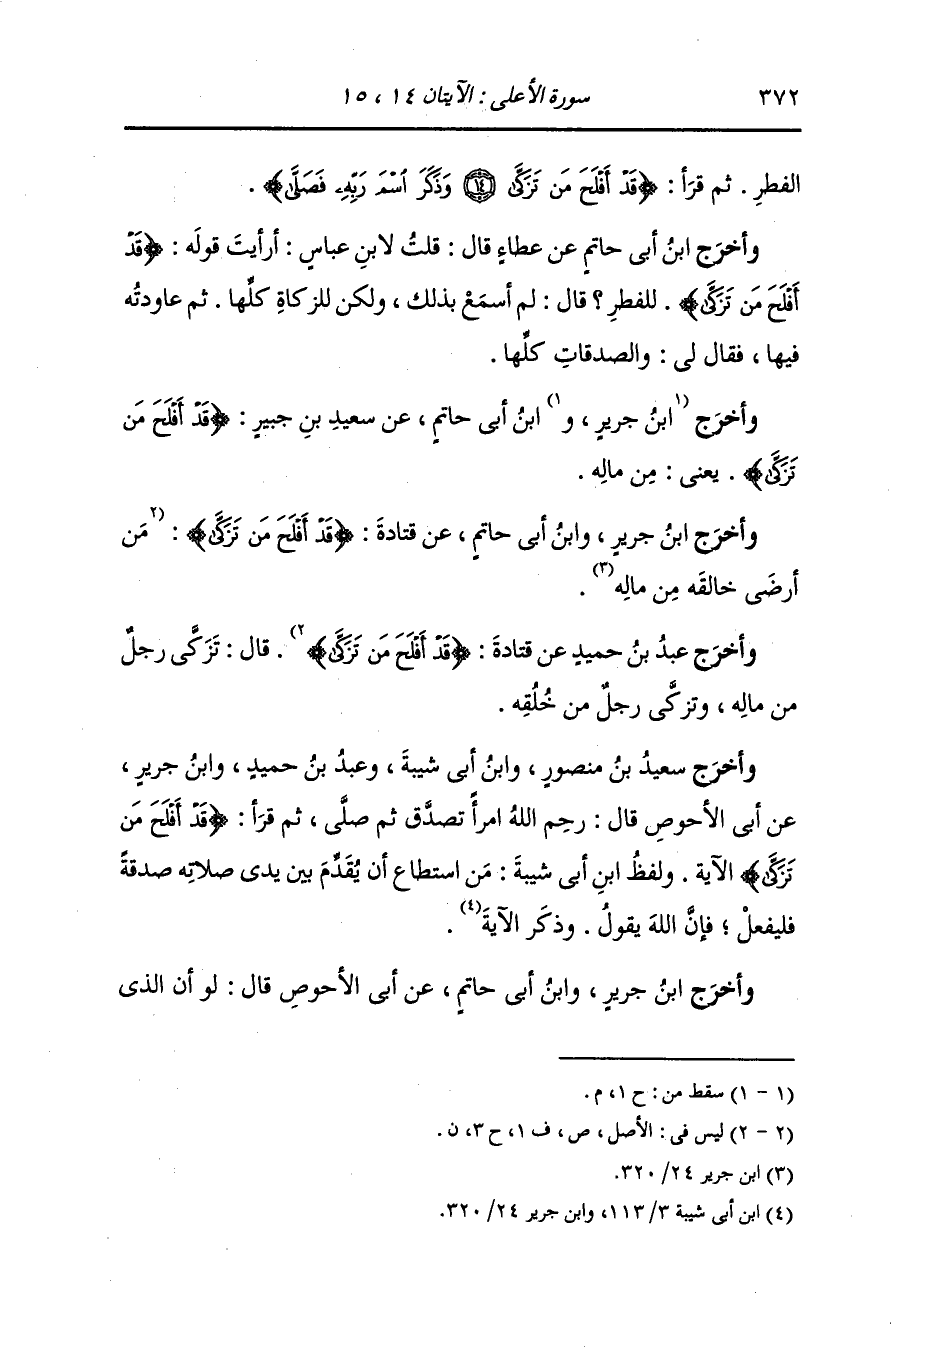 ٣٧٢ سورة الأعلى : الآيتان ١٤ ، ١٥
الفطرِ . ثم قرَأ : ﴿قَدْ أَفْلَحَ مَن تَزَكَّىٰ ١٤ وَذَكَرَ ٱسْمَ رَبِّهِۦ فَصَلَّىٰ﴾ .
وأخرَج ابنُ أبى حاتمٍ عن عطاءٍ قال : قلتُ لابنِ عباسٍ : أرأيتَ قولَه : ﴿قَدْ
أَفْلَحَ مَن تَزَكَّىٰ﴾ . للفطرِ ؟ قال : لم أسمَعْ بذلك ، ولكن للزكاةِ كلِّها . ثم عاودتُه
فيها ، فقال لى : والصدقاتِ كلِّها .
وأخرَج (١) ابنُ جريرٍ ، و(١) ابنُ أبى حاتمٍ ، عن سعيدِ بنِ جبيرٍ : ﴿قَدْ أَفْلَحَ مَن
تَزَكَّىٰ﴾ . يعنى : مِن مالِه .
وأخرَج ابنُ جريرٍ ، وابنُ أبى حاتمٍ ، عن قتادةَ : ﴿قَدْ أَفْلَحَ مَن تَزَكَّىٰ﴾ : (٢) مَن
أرضَى خالقَه مِن مالِه(٣) .
وأخرَج عبدُ بنُ حميدٍ عن قتادةَ : ﴿قَدْ أَفْلَحَ مَن تَزَكَّىٰ﴾(٢) . قال : تَزَكَّى رجلٌ
من مالِه ، وتزكَّى رجلٌ من خُلُقِه .
وأخرَج سعيدُ بنُ منصورٍ ، وابنُ أبى شيبةَ ، وعبدُ بنُ حميدٍ ، وابنُ جريرٍ ،
عن أبى الأحوصِ قال : رحِم اللهُ امرأً تصدَّق ثم صلَّى ، ثم قرَأ : ﴿قَدْ أَفْلَحَ مَن
تَزَكَّىٰ﴾ الآية . ولفظُ ابنِ أبى شيبةَ : مَن استطاع أن يُقَدِّمَ بين يدى صلاتِه صدقةً
فليفعلْ ؛ فإنَّ اللهَ يقولُ . وذكَر الآيةَ(٤) .
وأخرَج ابنُ جريرٍ ، وابنُ أبى حاتمٍ ، عن أبى الأحوصِ قال : لو أن الذى
(١ - ١) سقط من : ح ١، م .
(٢ - ٢) ليس فى : الأصل ، ص، ف ١، ح ٣، ن .
(٣) ابن جرير ٢٤/ ٣٢٠.
(٤) ابن أبى شيبة ٣/ ١١٣، وابن جرير ٢٤/ ٣٢٠.